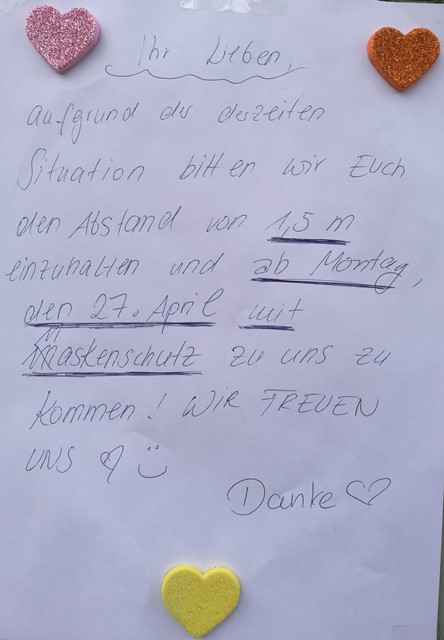 Ihr Lieben,
aufgrund der derzeiten
Situation bitten wir Euch
den Abstand von 1,5 m
einzuhalten und ab Montag,
den 27. April mit
Maskenschutz zu uns zu
kommen! WIR FREUEN
UNS ♡ ☺
Danke ♡